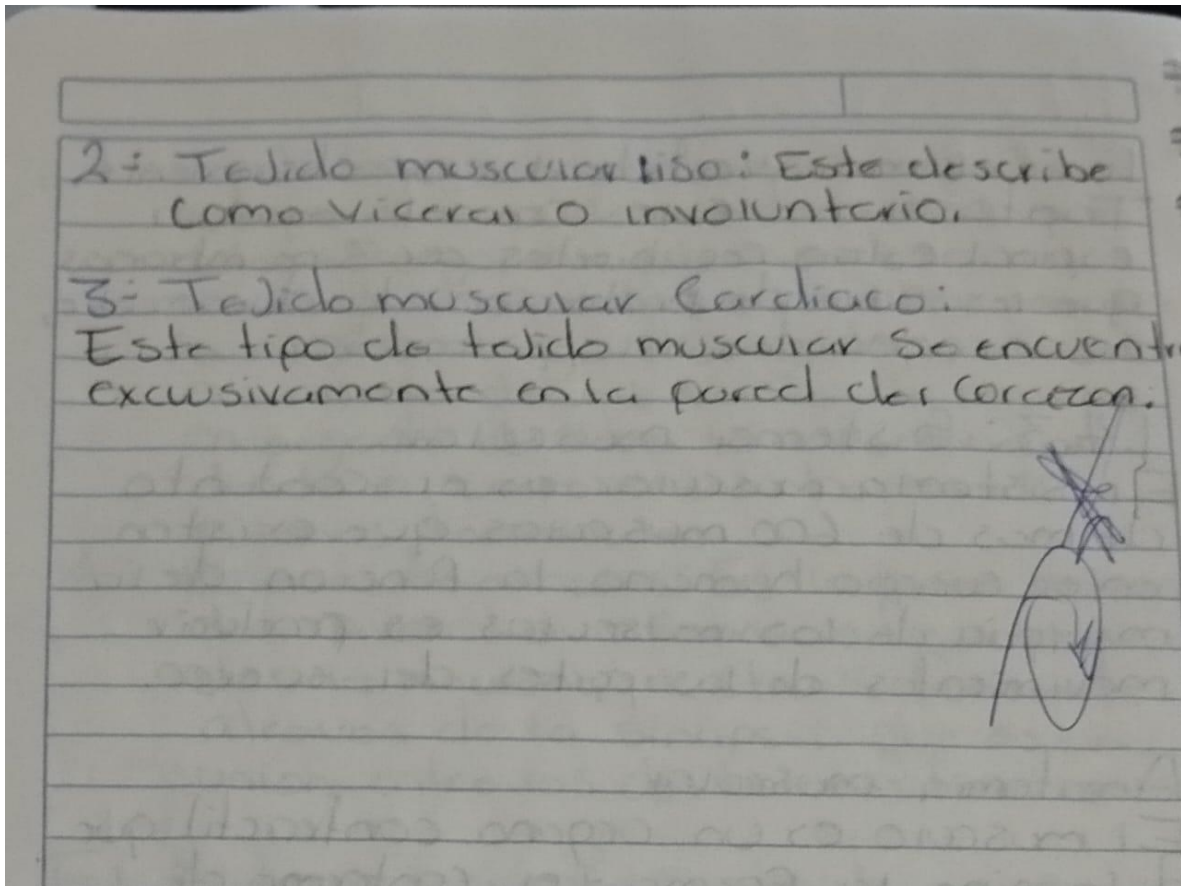 2- Tejido muscular liso: Este describe
como viceral o involuntario.
3- Tejido muscular Cardiaco:
Este tipo de tejido muscular se encuentr
exclusivamente en la pared del corazon.